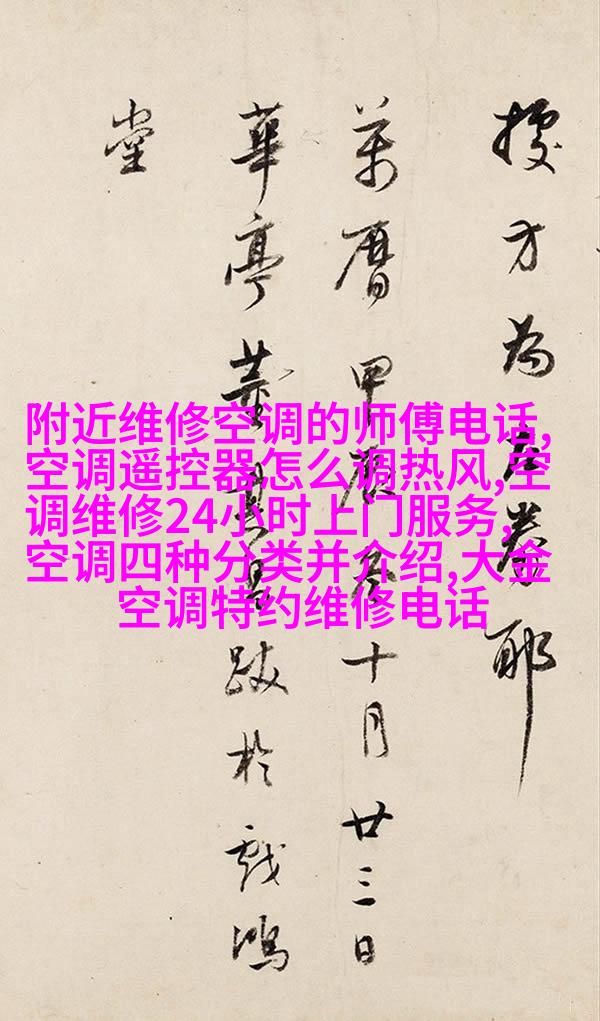 方為卷耶
萬曆甲辰冬十月廿三日
華亭董其昌跋於戲鴻
堂
附近维修空调的师傅电话,
空调遥控器怎么调热风,空
调维修24小时上门服务,
空调四种分类并介绍,大金
空调特约维修电话